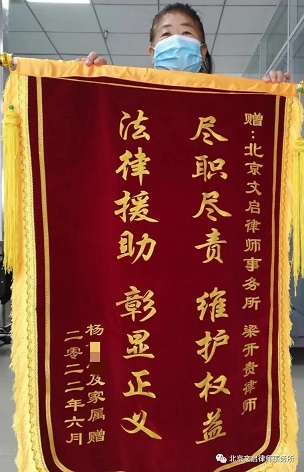 赠：北京文启律师事务所 梁开贵律师
尽职尽责 维护权益
法律援助 彰显正义
杨 及家属赠
二零二二年六月
北京文启律师事务所